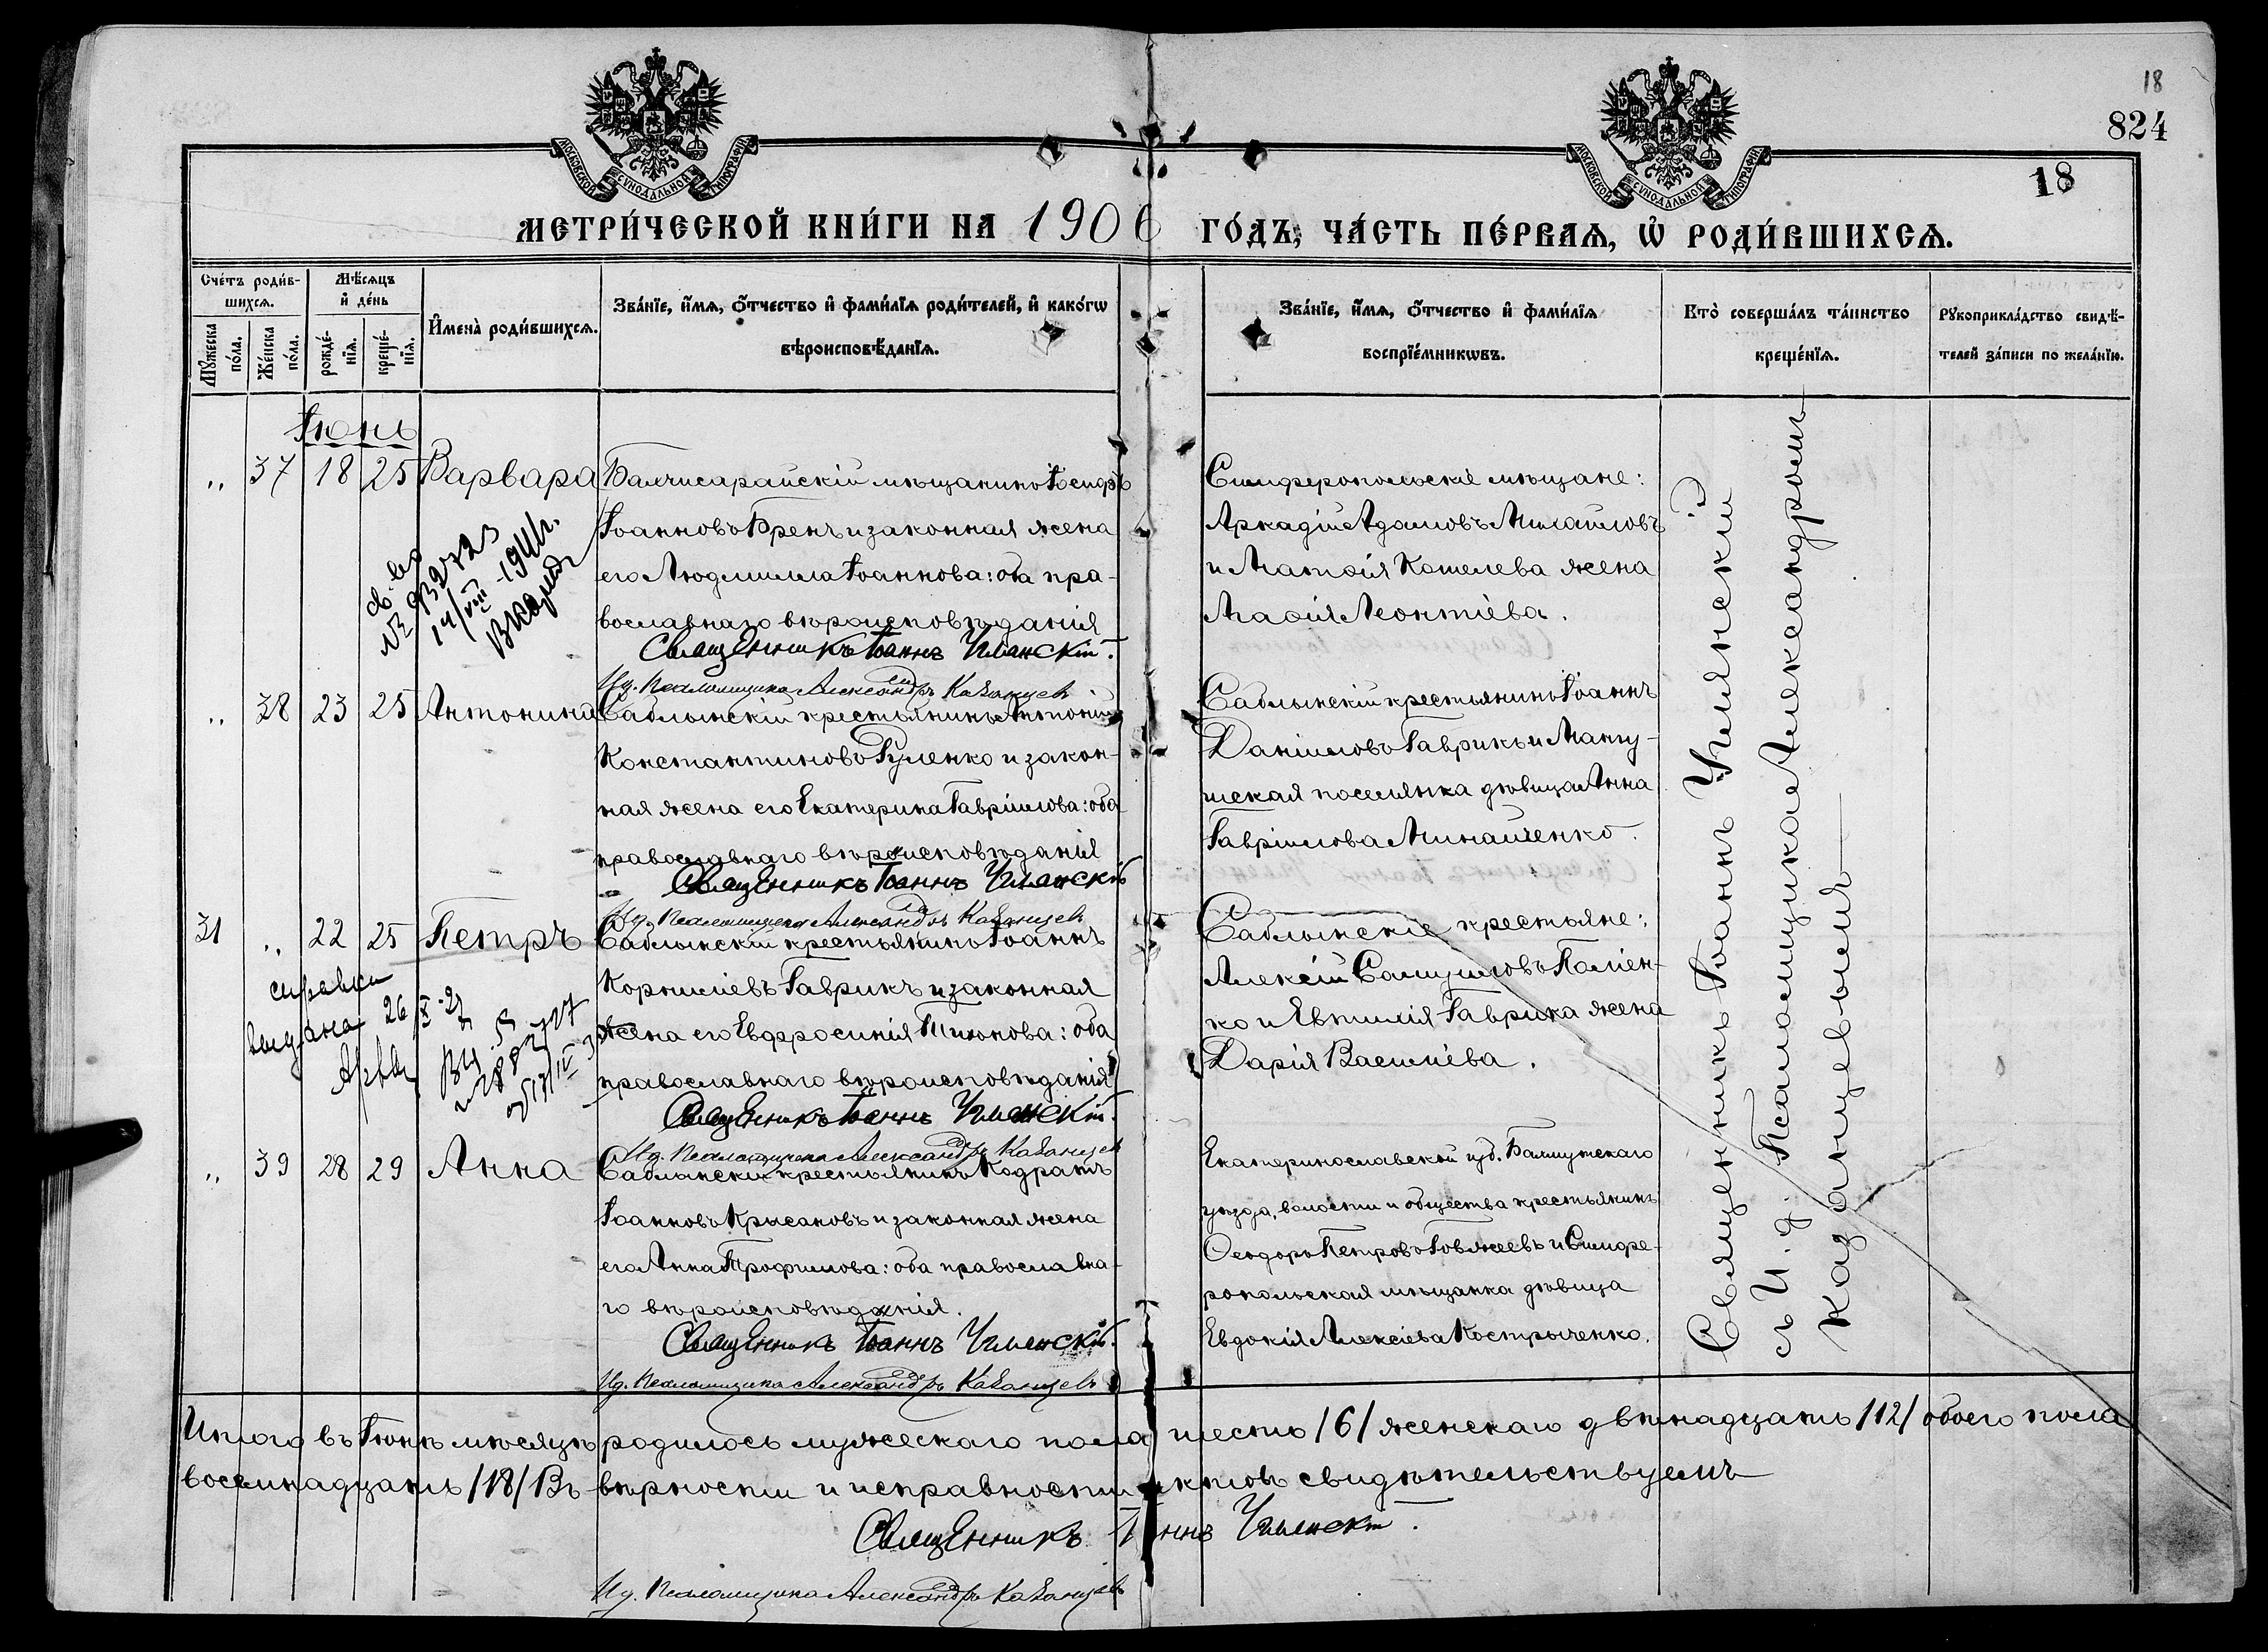 18
824
18
МОСКОВСКОЙ СѴНОДАЛЬНОЙ ТИПОГРАФІИ
МОСКОВСКОЙ СѴНОДАЛЬНОЙ ТИПОГРАФІИ
МЕТРИ́ЧЕСКОЙ КНИ́ГИ НА 1906 ГО́ДЪ, ЧА́СТЬ ПЕ́РВАѦ, Ѽ РОДИ́ВШИХСѦ.
Сче́тъ роди́в-
шихсѧ.
Мꙋ́жеска по́ла.
Же́нска по́ла.
Мѣ́сѧцъ
и҆ де́нь
рожде́-
нїѧ.
креще́-
нїѧ.
И҆мена̀ роди́вшихсѧ.
Зва́нїе, и҆́мѧ, ѻ҆́тчество и҆ фами́лїѧ роди́телей, и҆ како́гѡ
вѣроисповѣ́данїѧ.
Зва́нїе, и҆́мѧ, ѻ҆́тчество и҆ фами́лїѧ
воспрїе́мникѡвъ.
Кто̀ соверша́лъ та́инство
креще́нїѧ.
Рꙋкоприкла́дство свидѣ́-
телей за́писи по жела́нїю.
Іюнь
" 37 18 25 Варвара
Бахчисарайскій мѣщанинъ Іосифъ
Іоанновъ Френъ и законная жена
его Людмилла Іоаннова: оба пра-
вославнаго вѣроисповѣданія
Священникъ Іоаннъ Чилянскій.
Ид. Псаломщика Александръ Казанцевъ
Симферопольскіе мѣщане:
Аркадій Адамовъ Михайловъ
и Матѳія Кошелева жена
Марія Леонтіева.
14/VIII-1941г.
" 38 23 25 Антонина
Саблынскій крестьянинъ Антоній
Константиновъ Руленко и закон-
ная жена его Екатерина Гавріилова: оба
православнаго вѣроисповѣданія
Священникъ Іоаннъ Чилянскій
Ид. Псаломщика Александръ Казанцевъ
Саблынскій крестьянинъ Іоаннъ
Даніиловъ Гаврикъ и Мангу-
шская поселянка дѣвица Анна
Гавріилова Минайченко.
31 " 22 25 Петръ
Саблынскій крестьянинъ Іоаннъ
Корниліевъ Гаврикъ и законная
жена его Евфросинія Тихонова: оба
православнаго вѣроисповѣданія
Священникъ Іоаннъ Чилянскій.
Ид. Псаломщика Александръ Казанцевъ
Саблынскіе крестьяне:
Алексій Самуиловъ Паліен-
ко и Евтихія Гаврика жена
Дарія Василіева.
справка
выдана 26
" 39 28 29 Анна
Саблынскій крестьянинъ Кодратъ
Іоанновъ Крысановъ и законная жена
его Анна Трофимова: оба православна-
го вѣроисповѣданія.
Священникъ Іоаннъ Чилянскій.
Ид. Псаломщика Александръ Казанцевъ
Екатеринославской губ. Бахмутскаго
уѣзда, волости и общества крестьянинъ
Ѳеодоръ Петровъ Говжеевъ и Симфе-
ропольская мѣщанка дѣвица
Евдокія Алексіева Костыченко.
Священникъ Іоаннъ Чилянскій
съ И. д. Псаломщикомъ Александромъ
Казанцевымъ
Итого въ Іюнѣ мѣсяцѣ родилось мужескаго пола шесть /6/ женскаго двѣнадцать /12/ обоего пола
восемнадцать /18/ Въ вѣрности и исправности актовъ свидѣтельствуемъ
Священникъ Іоаннъ Чилянскій.
Ид. Псаломщика Александръ Казанцевъ